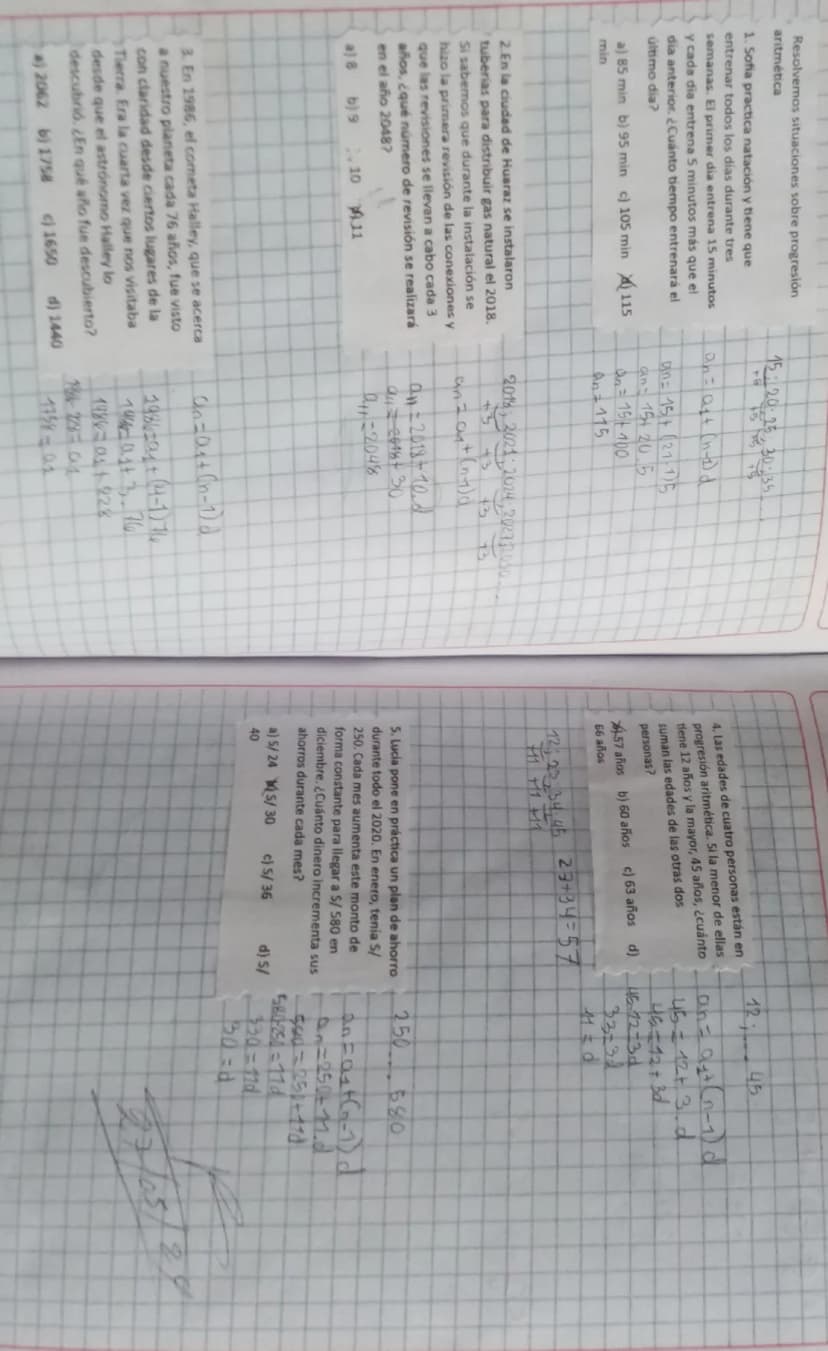 Resolvemos situaciones sobre progresión
aritmética
1. Sofía practica natación y tiene que
entrenar todos los días durante tres
semanas. El primer día entrena 15 minutos
y cada día entrena 5 minutos más que el
día anterior. ¿Cuánto tiempo entrenará el
último día?
a) 85 min b) 95 min c) 105 min d) 115
min
15; 20; 25; 30; 35...
+5 +5 +5 +5
an = a1 + (n-1)d
an = 15 + (21-1)5
an = 15 + 20.5
an = 15 + 100
an = 115
2. En la ciudad de Huaraz se instalaron
tuberías para distribuir gas natural el 2018.
Si sabemos que durante la instalación se
hizo la primera revisión de las conexiones y
que las revisiones se llevan a cabo cada 3
años, ¿qué número de revisión se realizará
en el año 2048?
a) 8 b) 9 10 11
2018; 2021; 2024; 2027; 2030...
+3 +3 +3 +3
an = a1 + (n-1)d
a11 = 2018 + 10.d
a11 = 2018 + 30
a11 = 2048
3. En 1986, el cometa Halley, que se acerca
a nuestro planeta cada 76 años, fue visto
con claridad desde ciertos lugares de la
Tierra. Era la cuarta vez que nos visitaba
desde que el astrónomo Halley lo
descubrió. ¿En qué año fue descubierto?
a) 2062 b) 1758 c) 1650 d) 1440
an = a1 + (n-1)d
1986 = a1 + (4-1)76
1986 = a1 + 3.76
1986 = a1 + 228
1986-228 = a1
1758 = a1
4. Las edades de cuatro personas están en
progresión aritmética. Si la menor de ellas
tiene 12 años y la mayor, 45 años, ¿cuánto
suman las edades de las otras dos
personas?
a) 57 años b) 60 años c) 63 años d)
66 años
12; .... 45
an = a1 + (n-1)d
45 = 12 + 3.d
45 = 12 + 3d
45-12 = 3d
33 = 3d
11 = d
12; 23; 34; 45 23+34=57
+11 +11 +11
5. Lucía pone en práctica un plan de ahorro
durante todo el 2020. En enero, tenía S/
250. Cada mes aumenta este monto de
forma constante para llegar a S/ 580 en
diciembre. ¿Cuánto dinero incrementa sus
ahorros durante cada mes?
a) S/ 24 b) S/ 30 c) S/ 36 d) S/
40
250.... 580
an = a1 + (n-1)d
an = 250 + 11.d
580 = 250 + 11d
580-250 = 11d
330 = 11d
30 = d